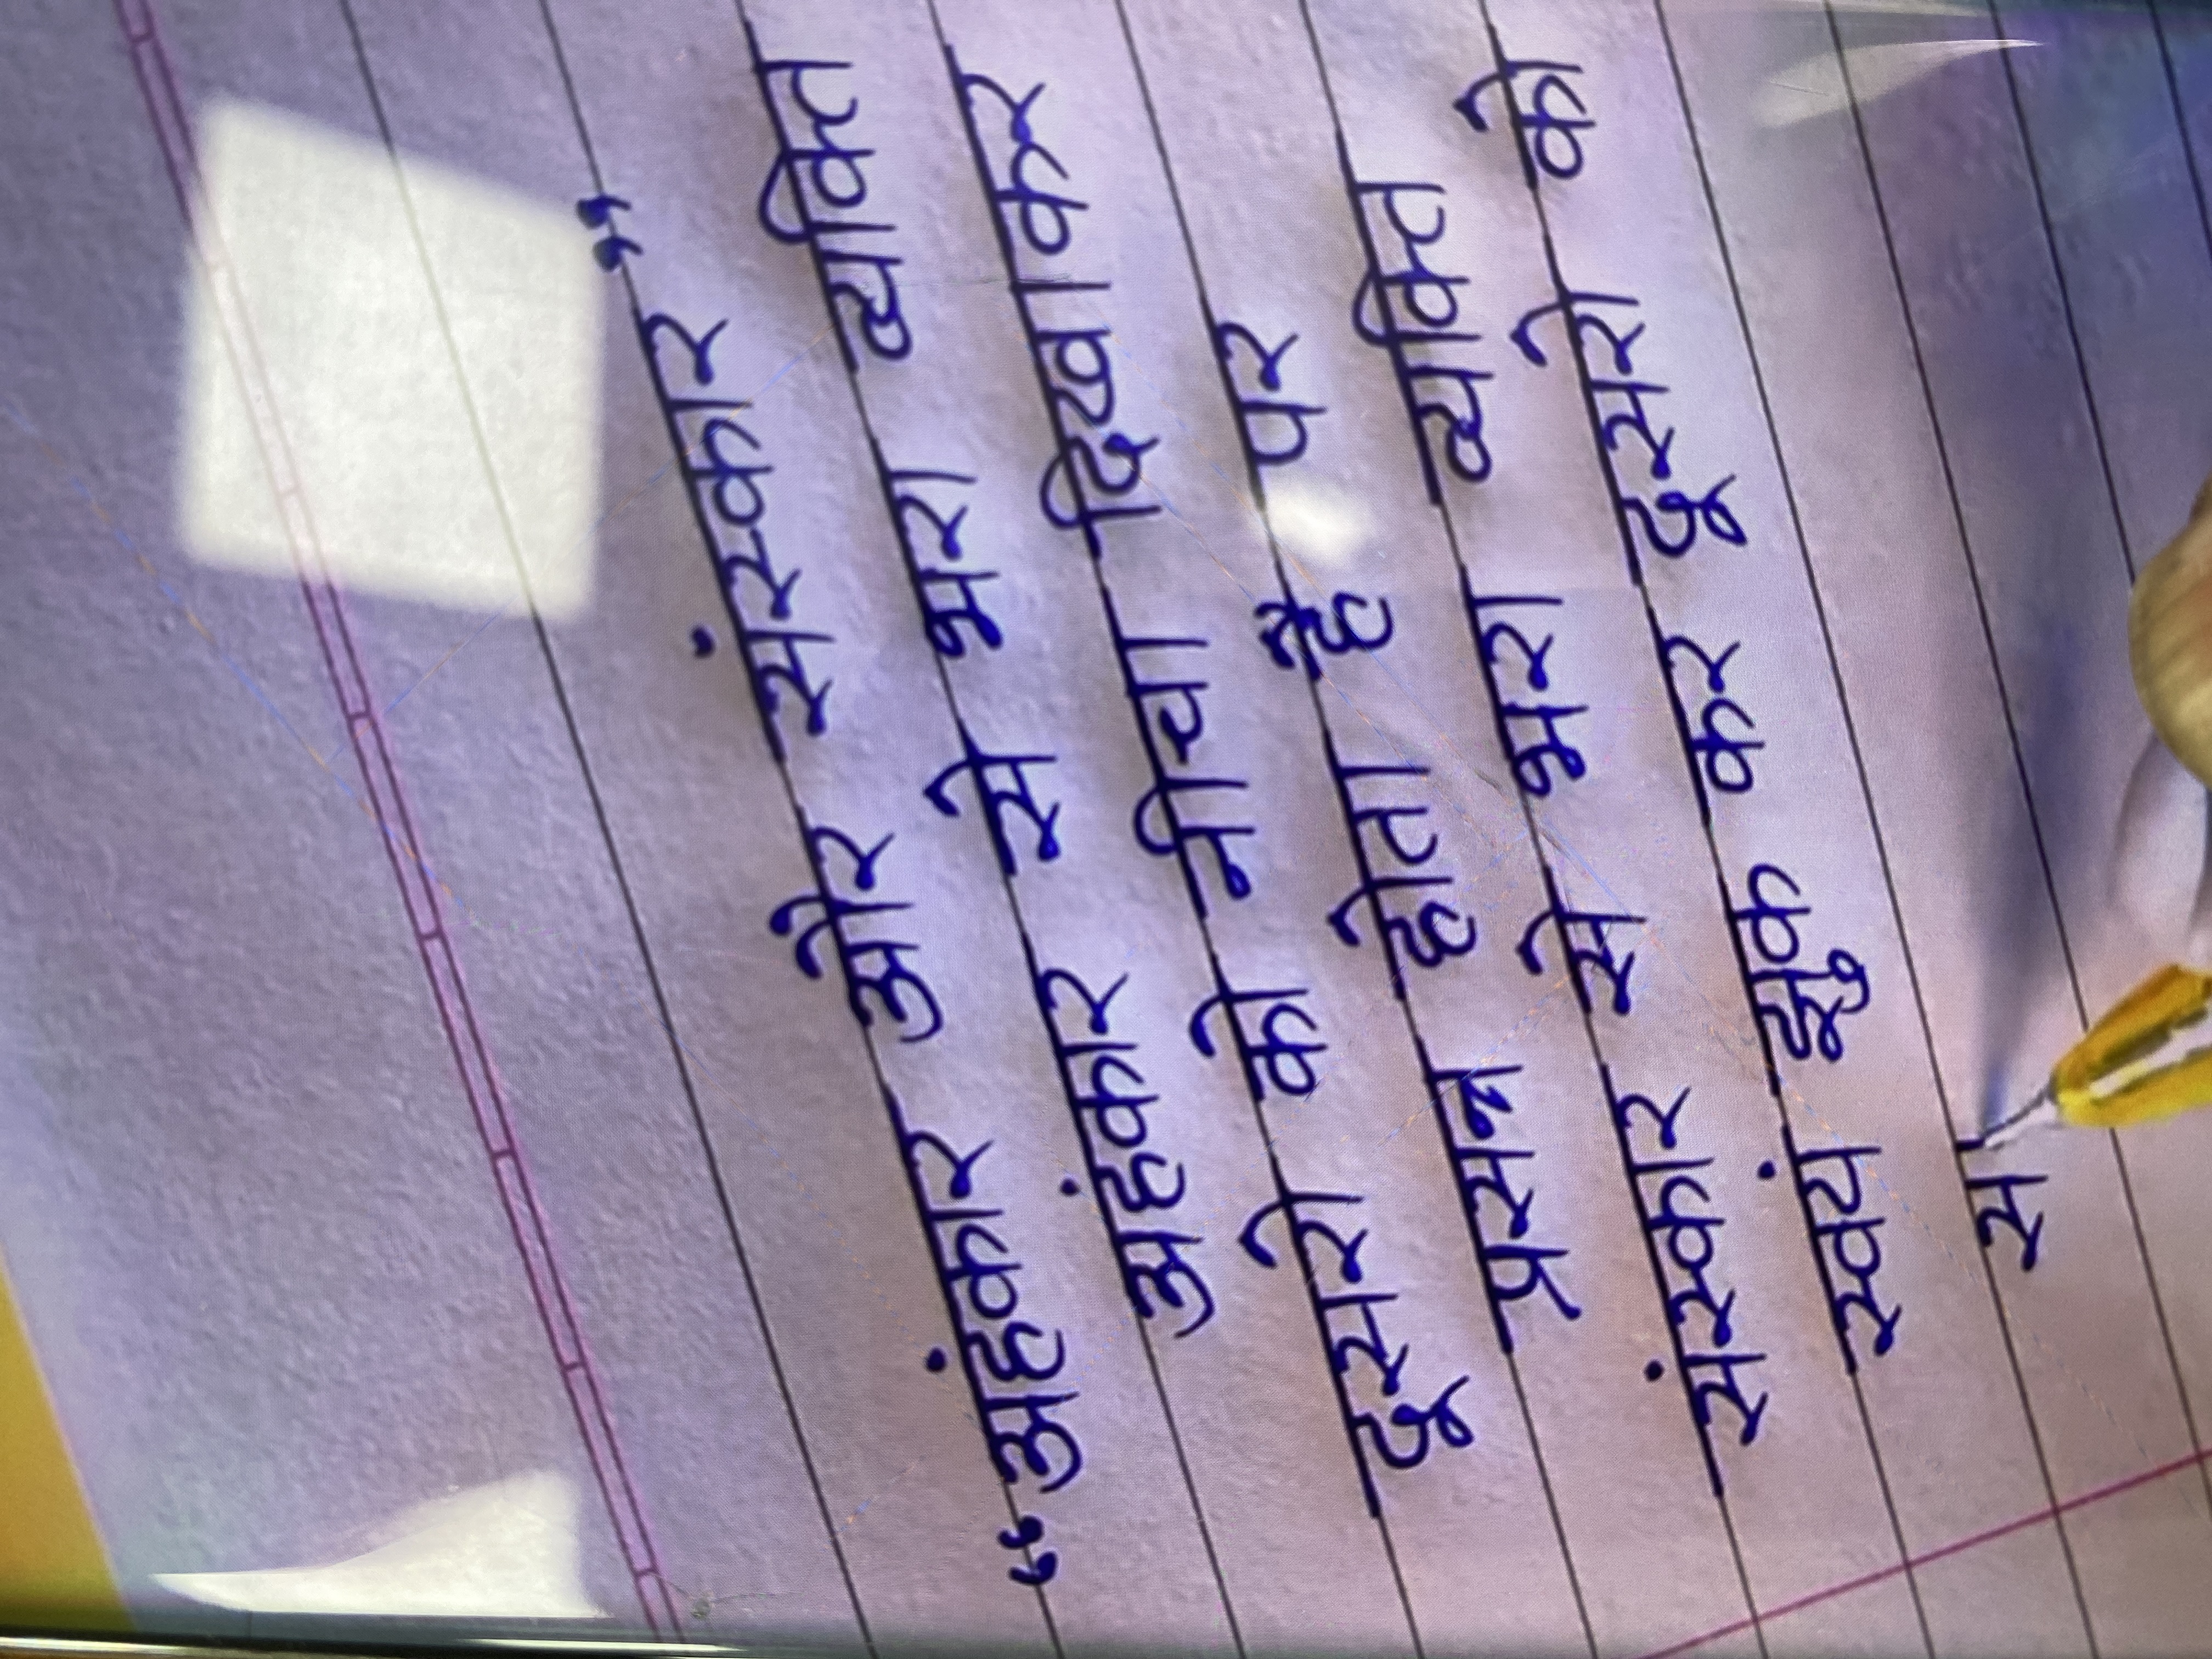 “अंहकार और संस्कार”
अंहकार से भरा व्यक्ति
दूसरो को नीचा दिखाकर
प्रसन्न होता हैं पर
संस्कार से भरा व्यक्ति
स्वयं झुक कर दूसरो को
स